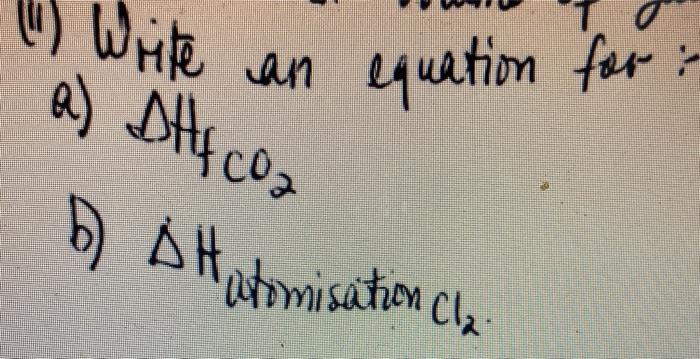 (ii) Write an equation for :-
a) ΔHf CO₂
b) ΔH atomisation Cl₂.